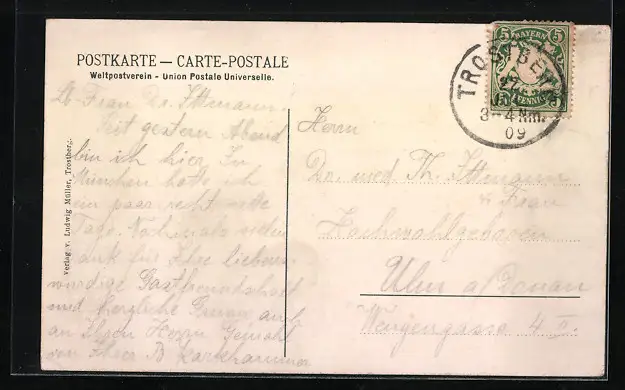 POSTKARTE — CARTE-POSTALE
Weltpostverein - Union Postale Universelle.
L. Frau Dr. Ittmann.
Seit gestern Abend
bin ich hier. In
München hatte ich
ein paar recht nette
Tage. Nochmals vielen
Dank für Ihre liebens
würdige Gastfreundschaft
und herzliche Grüsse auch
an Ihren Herrn Gemahl
von Ihrer B.
Verlag v. Ludwig Müller, Trostberg.
5 BAYERN 5
PFENNIG
TROSTBERG
3-4 Nm.
09
Herrn
Dr. med Th. Ittmann
u Frau
Hochwohlgeboren
Ulm a/Donau
Wengengasse 4 II.